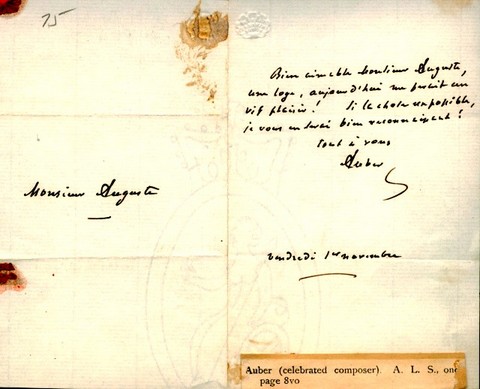 75
Bien aimable Monsieur Auguste,
une loge, aujourd'hui me ferait un
vif plaisir! Si la chose est possible,
je vous en serai bien reconnaissant!
Tout à vous
Auber
Monsieur Auguste
vendredi 1er novembre
Auber (celebrated composer). A. L. S., one
page 8vo